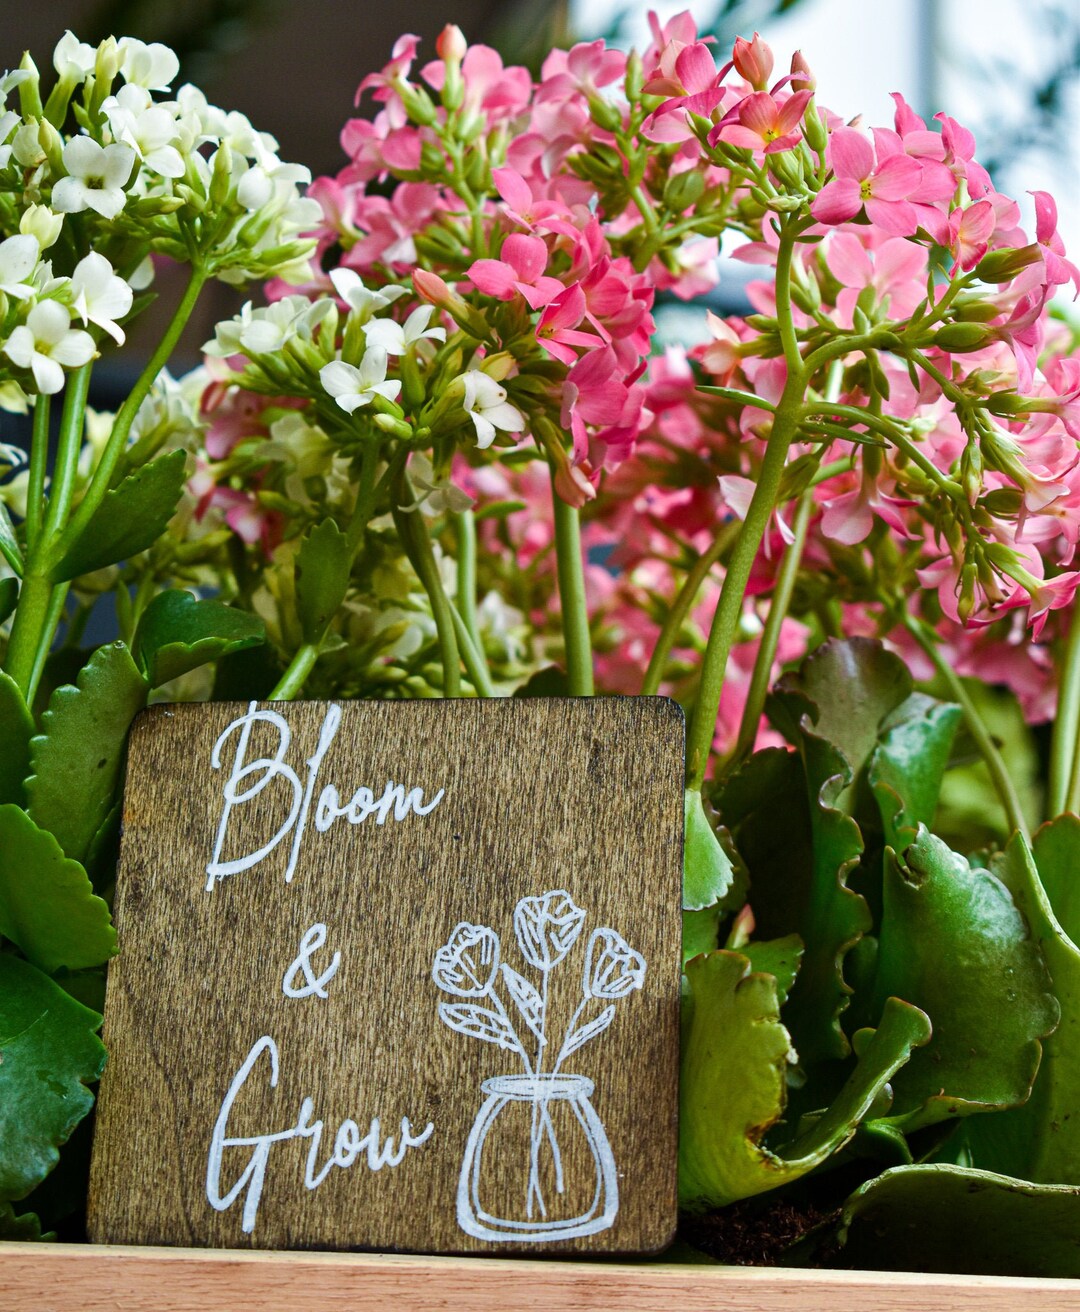 Bloom
&
Grow